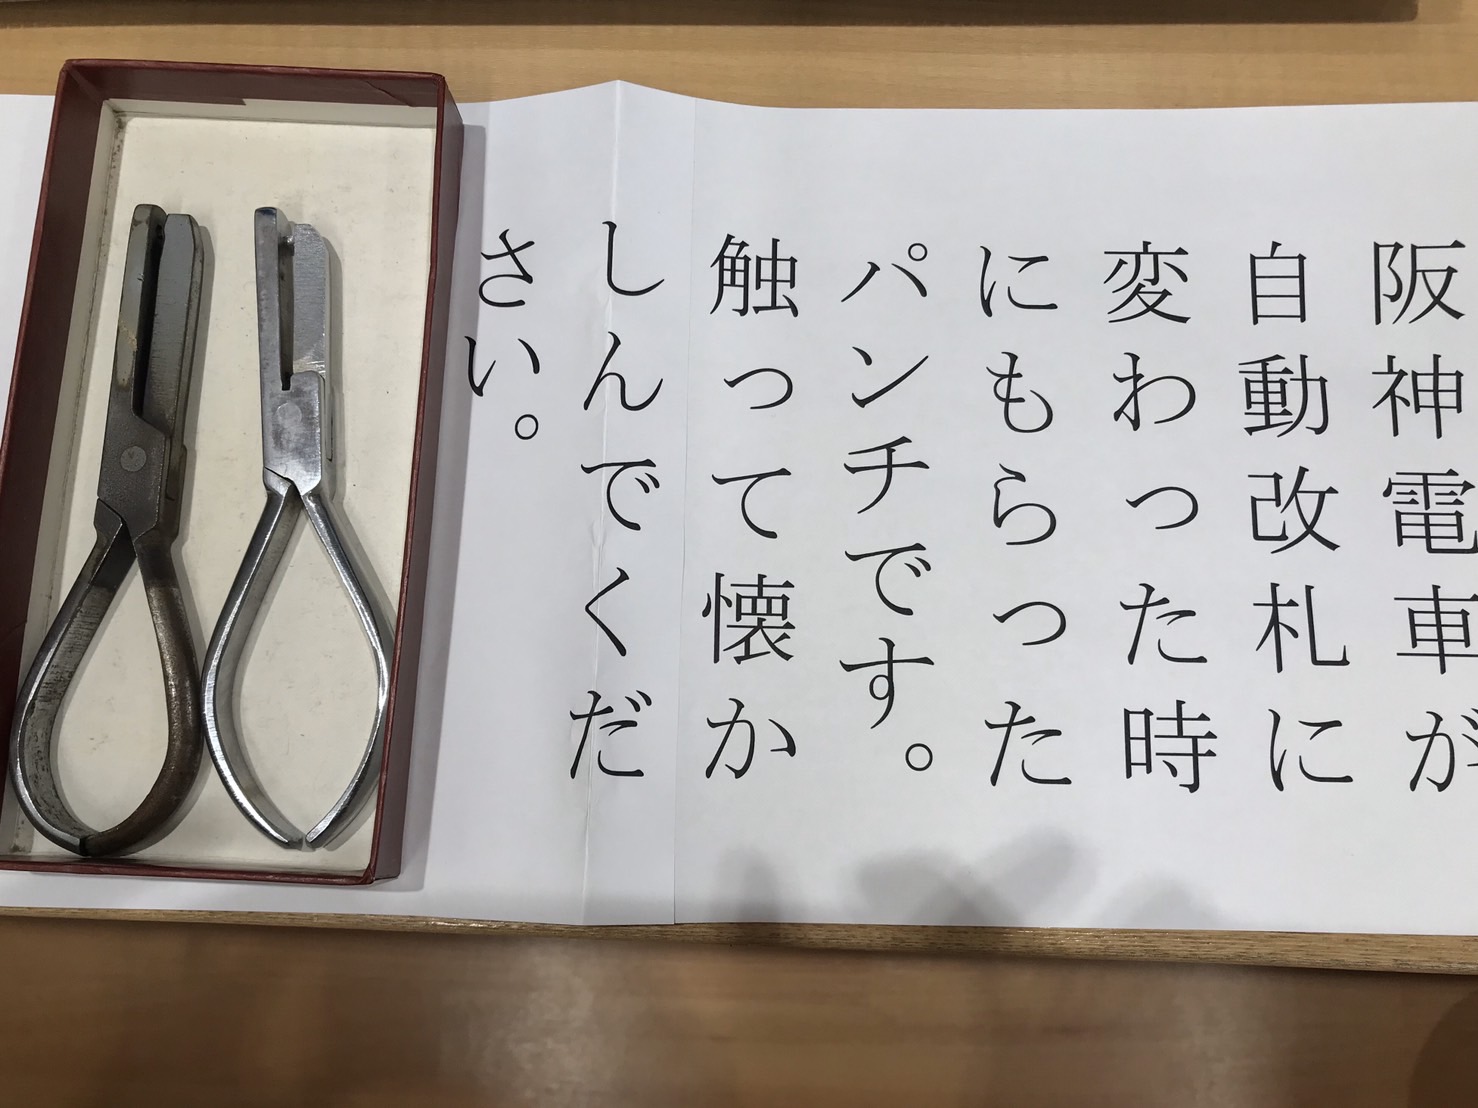 阪神電車が
自動改札に
変わった時
にもらった
パンチです。
触って懐か
しんでくだ
さい。